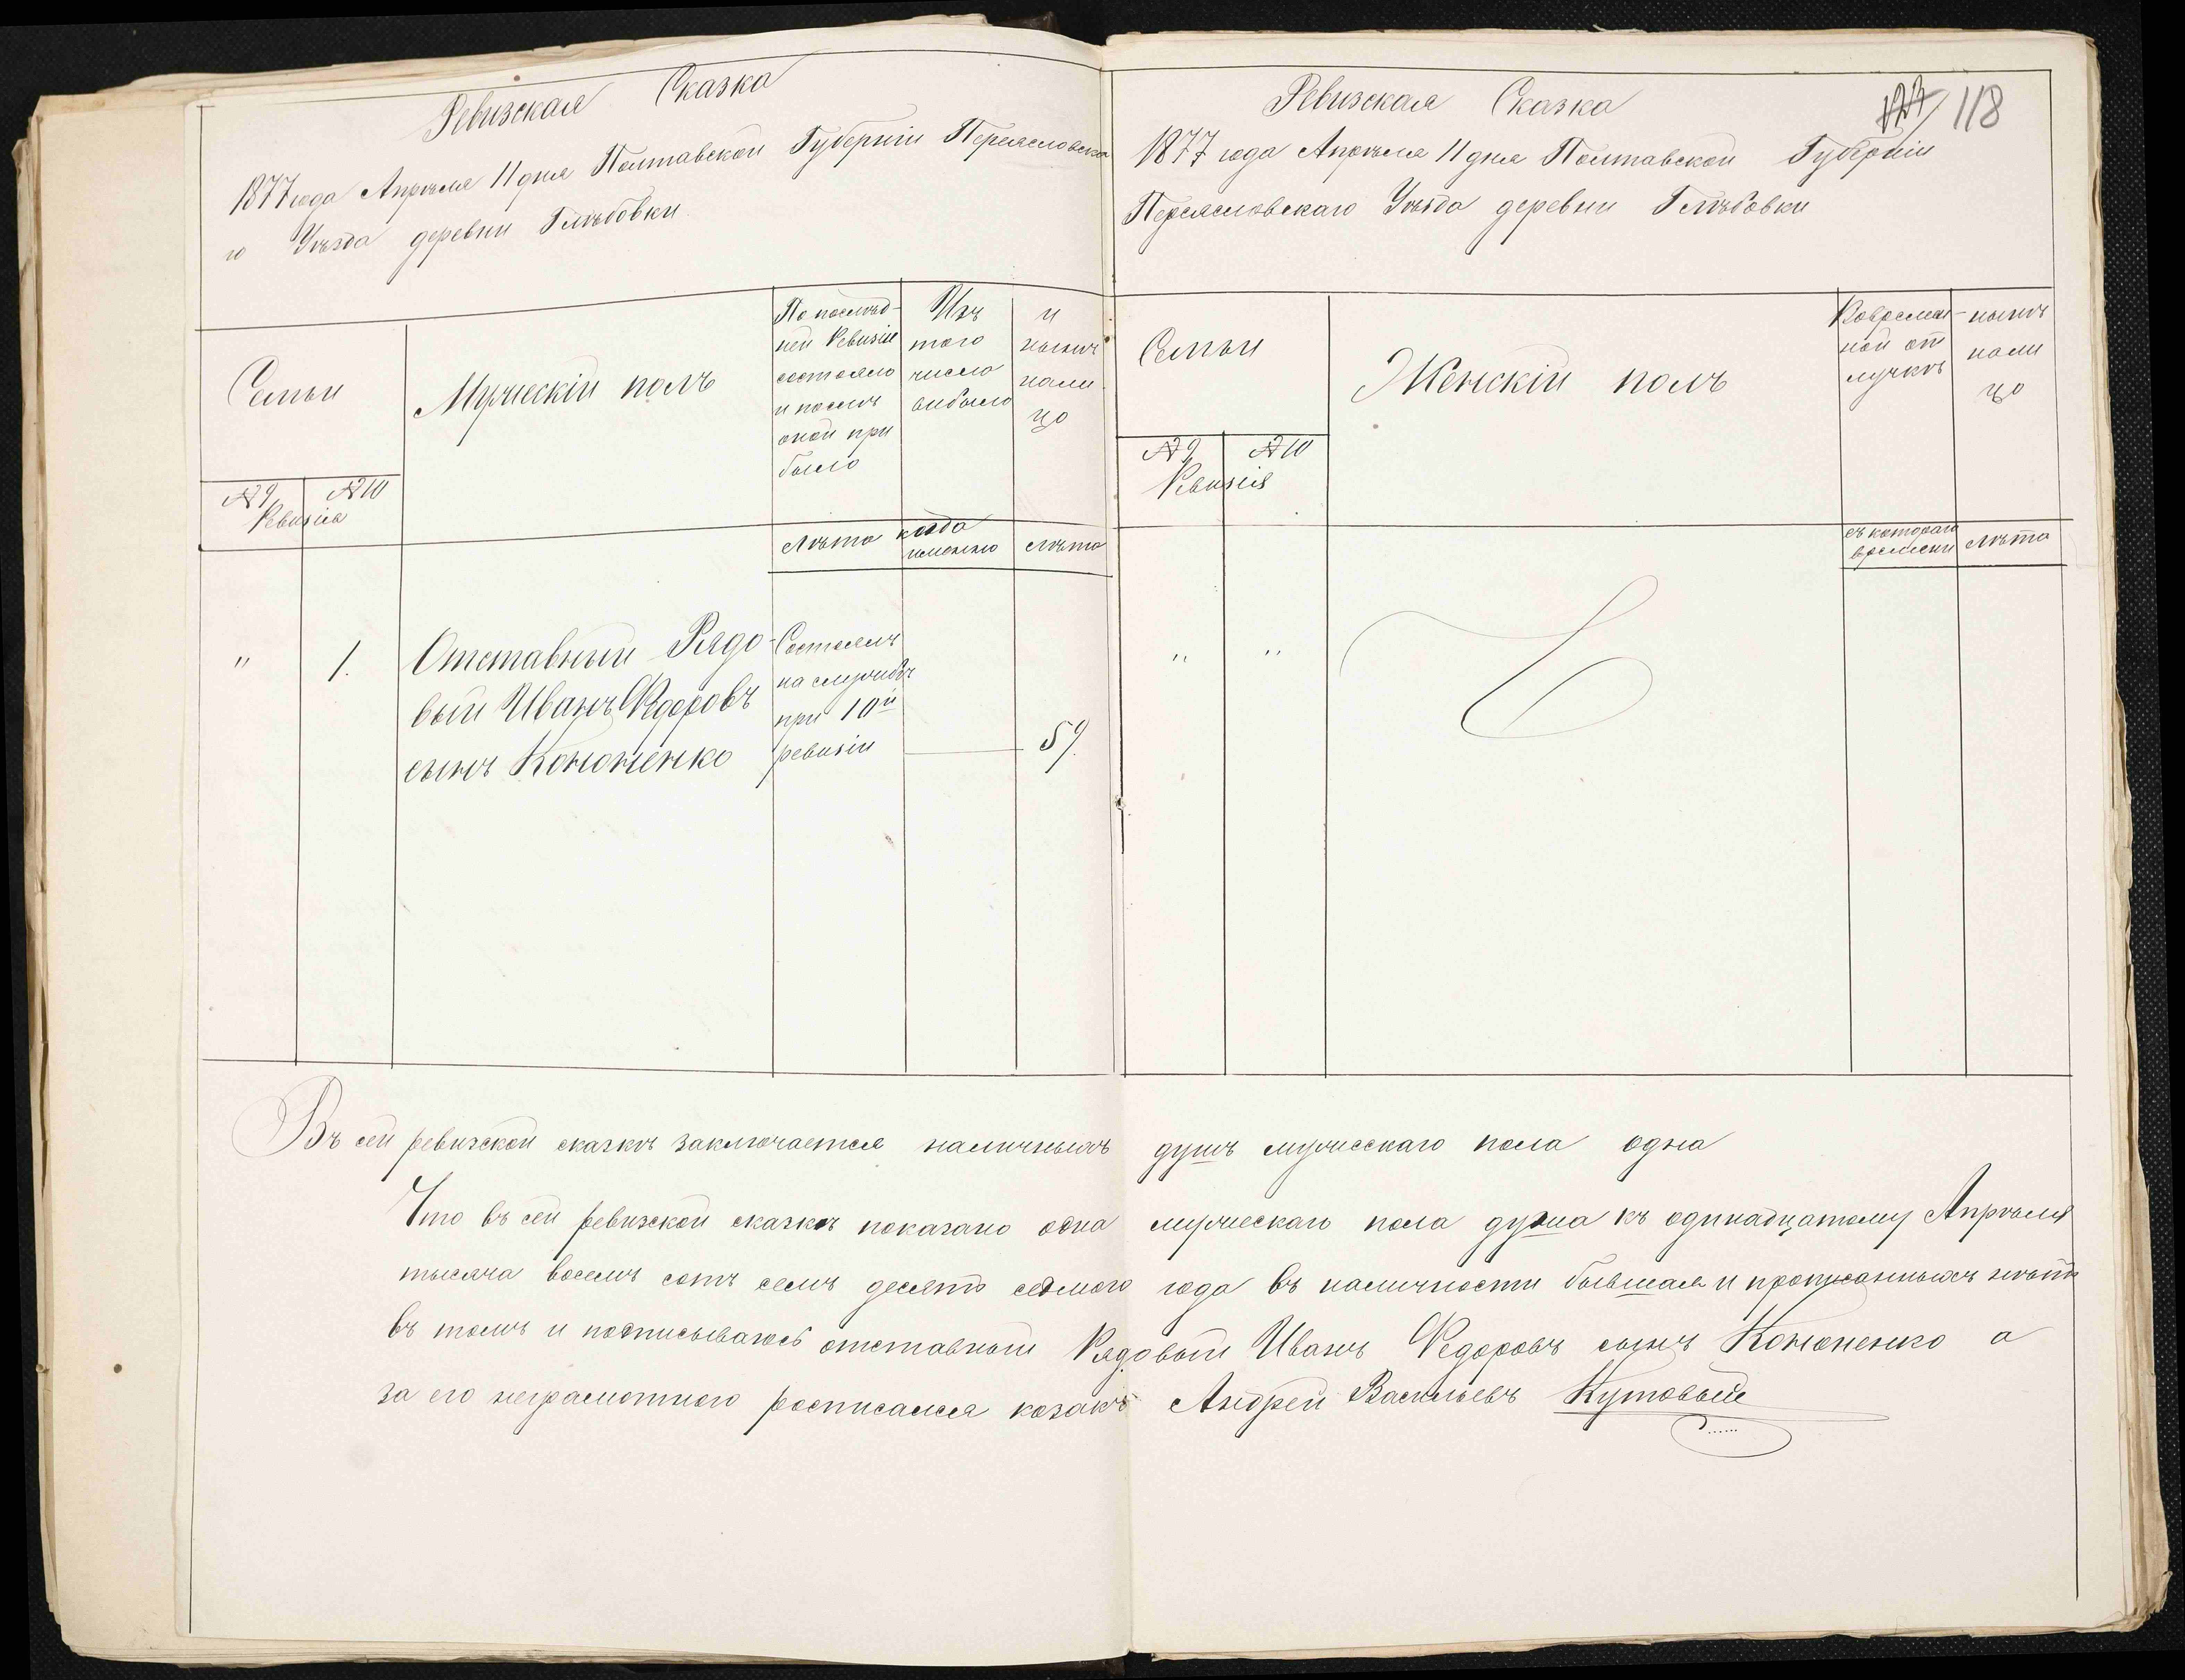 Ревизская Сказка
1877 года Апрѣля 11 дня Полтавской Губерніи Переясловска
го Уѣзда деревни Глѣбовки
Семьи
№ 9
№ 10
Ревизіи
Мужескій полъ
По послѣд-
ней Ревизіи
состояло
и послѣ
оной при
было
Изъ
того
число
выбыло
и
нынѣ
нали
цо
лѣта
когда
именно
лѣта
"
1.
Отставный Рядо-
вый Иванъ Федоровъ
сынъ Кононенко
Состоялъ
на службѣ
при 10й
ревизіи
59.
Ревизская Сказка
127 118
1877 года Апрѣля 11 дня Полтавской Губерніи
Переясловскаго Уѣзда деревни Глѣбовки
Семьи
№ 9
№ 10
Ревизія
Женскій полъ
Вовремен-
ной от
лучкѣ
нынѣ
нали
цо
съ котораго
времени
лѣта
" "
Въ сей ревизской сказкѣ заключается наличныхъ душъ мужескаго пола одна
Что въ сей ревизской сказкѣ показано одна мужескаго пола душа къ одинадцатому Апрѣля
тысяча восемъ сотъ семъ десято седмого года въ наличности бывшая и прописанныхъ нѣтъ
въ томъ и подписываюсь отставный Рядовый Иванъ Федоровъ сынъ Кононенко а
за его неграмотного росписался козакъ Андрей Васильевъ Кутовый